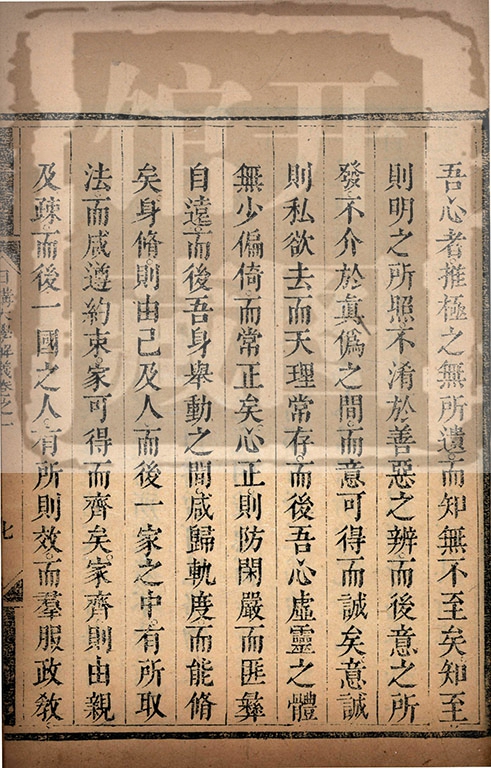 吾心者推極之無所遺而知無不至矣知至
則明之所照不淆於善惡之辨而後意之所
發不介於真僞之間而意可得而誠矣意誠
則私欲去而天理常存而後吾心虛靈之體
無少偏倚而常正矣心正則防閑嚴而匪彝
自遠而後吾身舉動之間咸歸軌度而能脩
矣身脩則由己及人而後一家之中有所取
法而咸遵約束家可得而齊矣家齊則由親
及疎而後一國之人有所則效而羣服政敎
日講大學解義卷之一
七